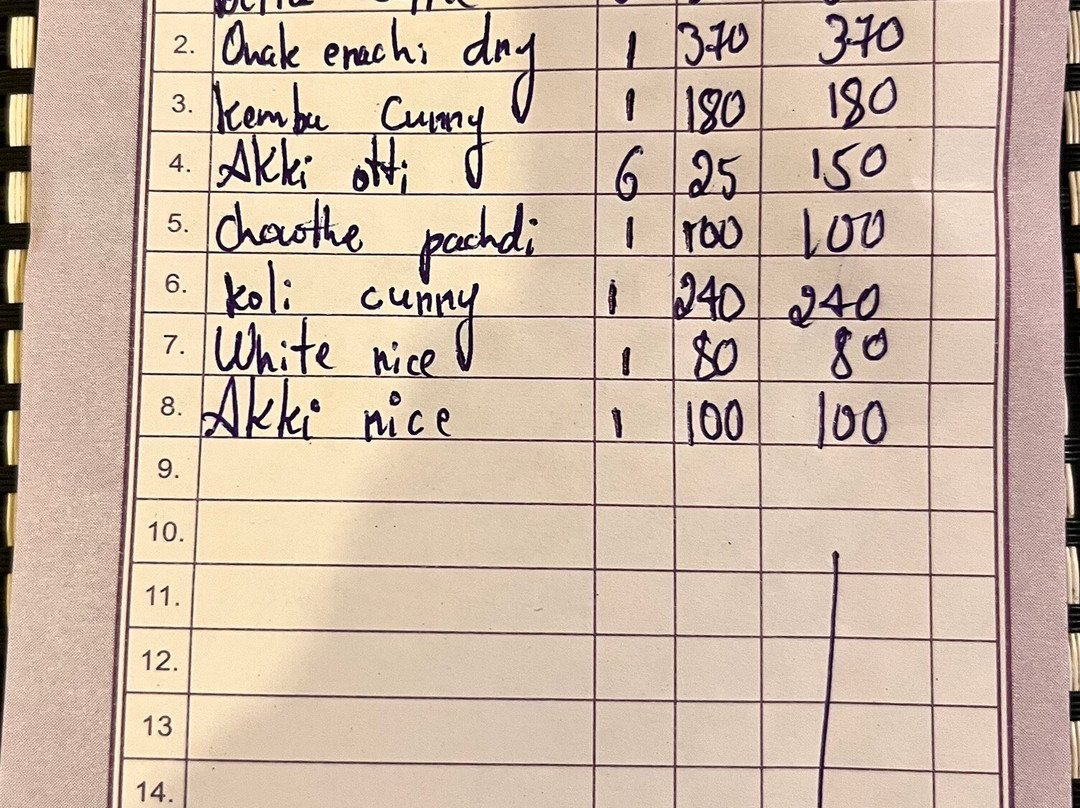 2. Onak enachi dry 1 370 370
3. Kembu Curry 1 180 180
4. Akki otti 6 25 150
5. Chowthe pachdi 1 100 100
6. Koli curry 1 240 240
7. White rice 1 80 80
8. Akki rice 1 100 100
9.
10.
11.
12.
13
14.